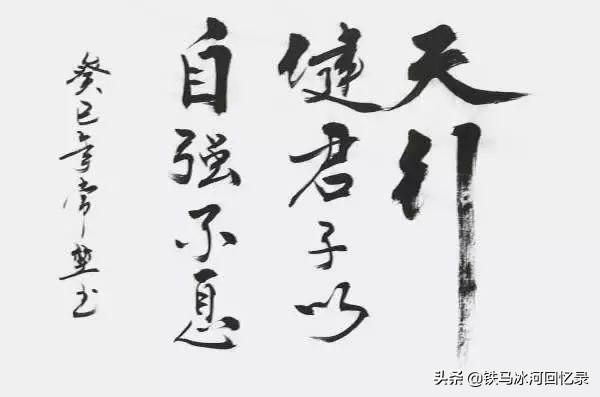 天行
健君子以
自强不息
癸巳年常楚书
头条 @铁马冰河回忆录